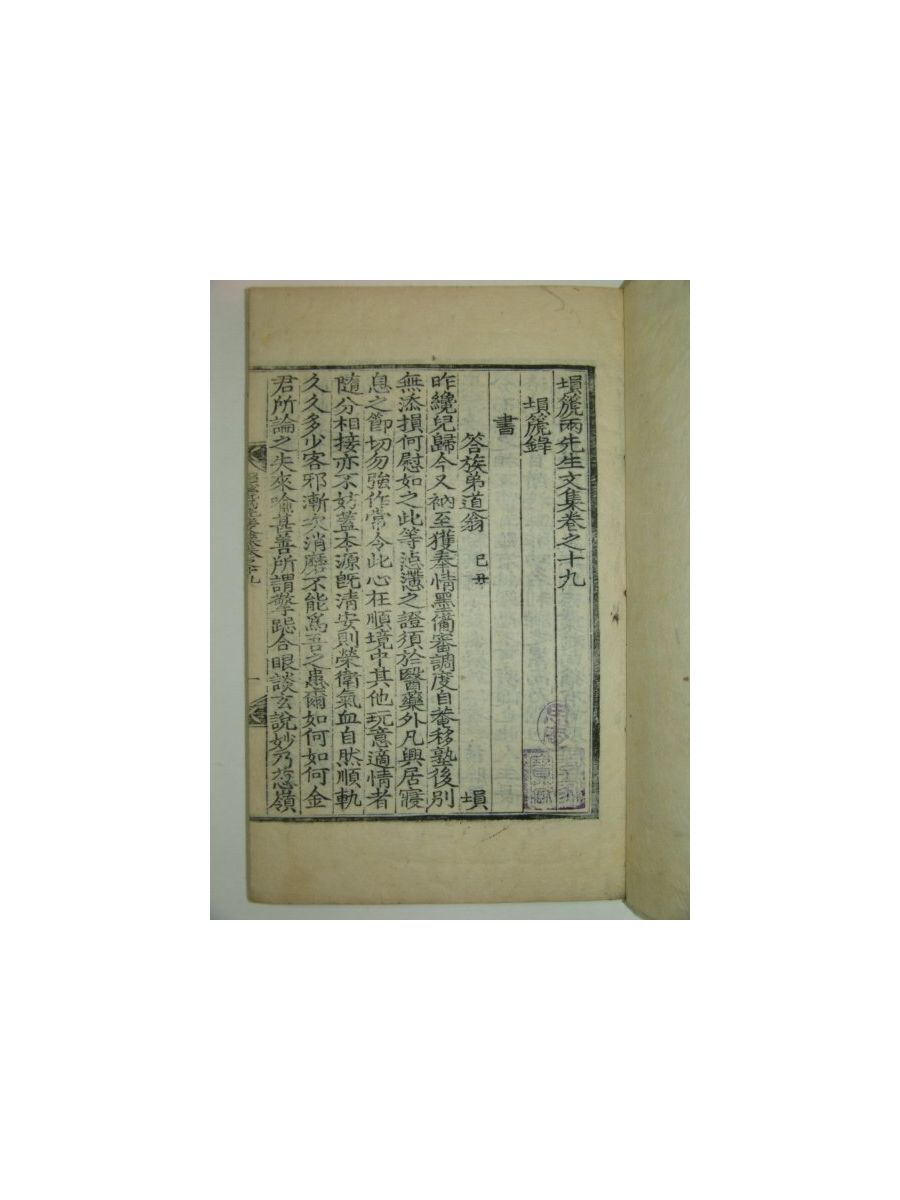 塤篪兩先生文集卷之十九
塤篪錄
書
答族弟道翁 己丑 塤
昨纔兒歸今又衲至獲奉情墨備審調度自菴移塾後別
無添損何慰如之此等怘懘之證須於醫藥外凡興居寢
息之節切勿強作常令此心在順境中其他玩意適情者
隨分相接亦不妨蓋本源旣清安則榮衛氣血自然順軌
久久多少客邪漸次消磨不能爲吾之患爾如何如何金
君所論之失來喩甚善所謂擎跽合眼談玄說妙乃葱嶺